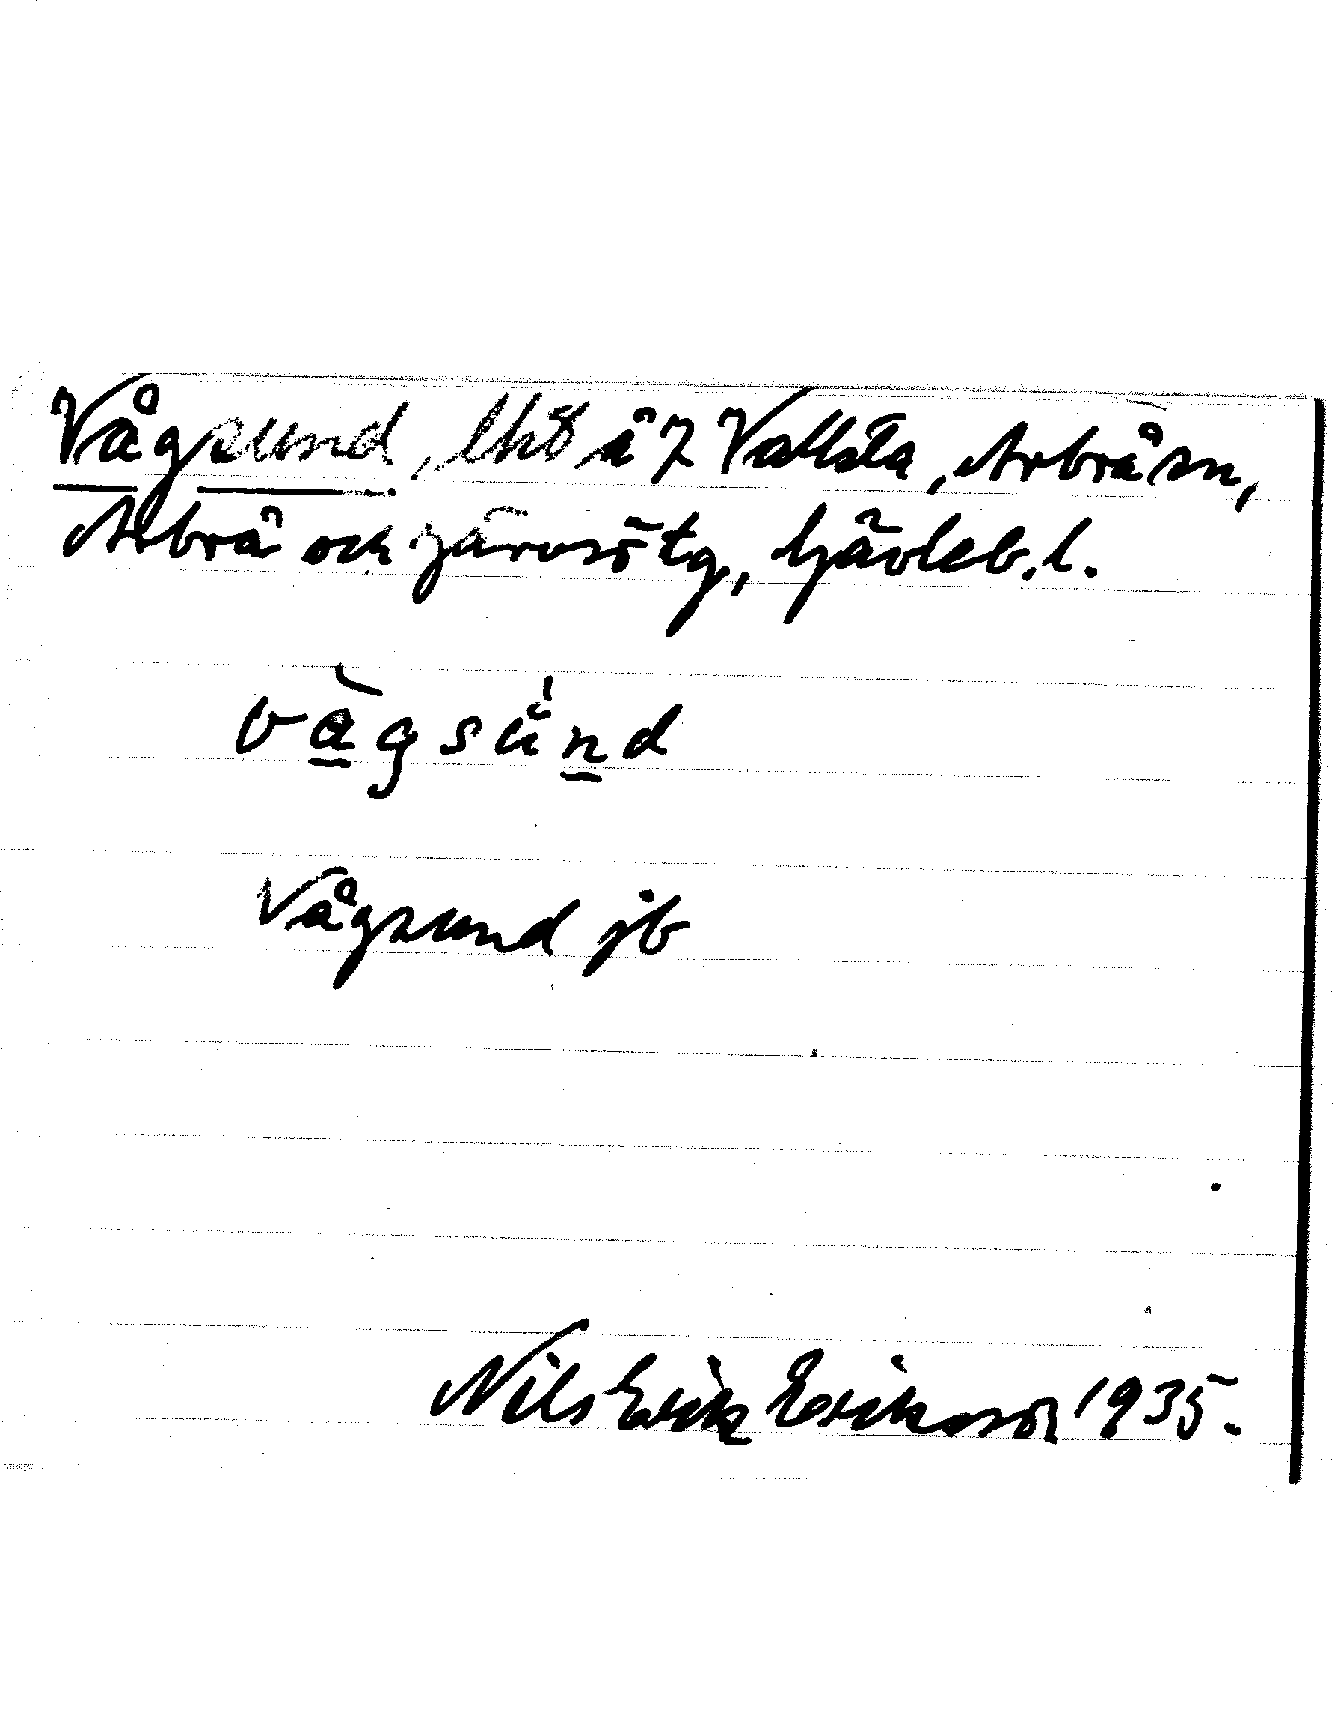 Vågsund, lht å 7 Vallsta, Arbrå sn,
Arbrå och Järvsö tg, Gävleb. l.
vågsund
Vågsund jb
Nils Erik Eriksson 1935.